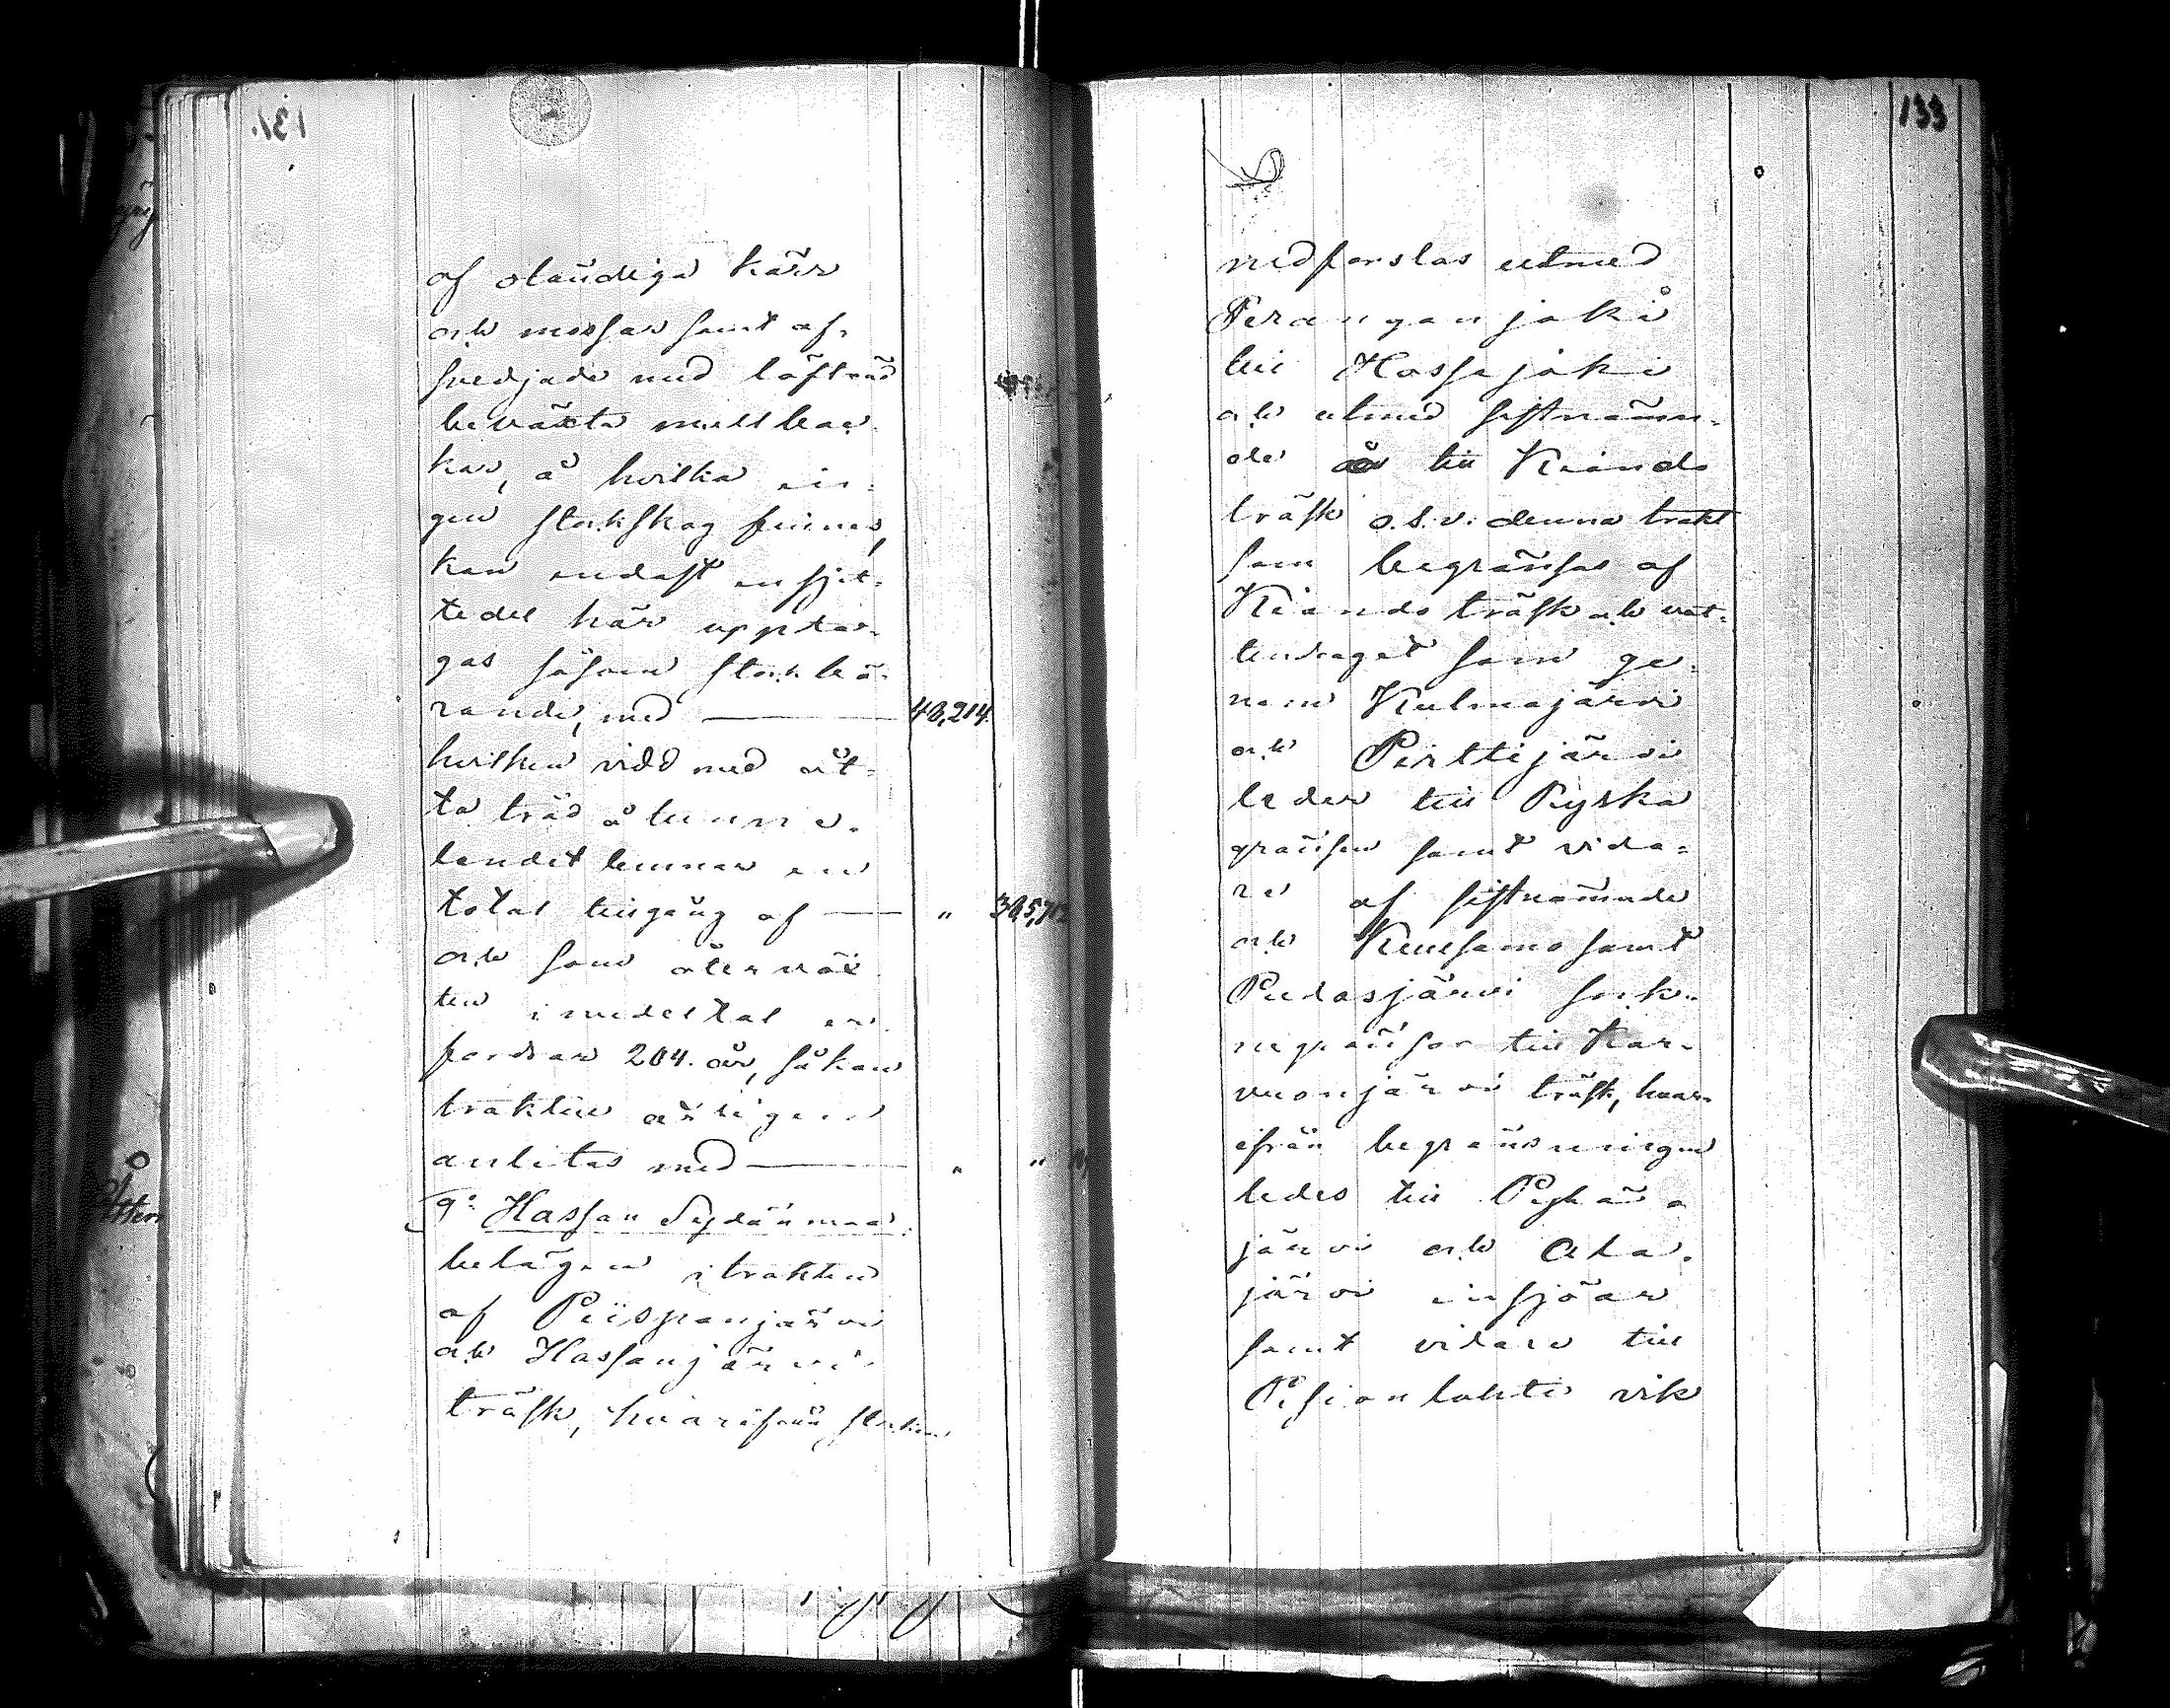 af oländiga kärr
och mossar samt af-
svedjade med löfträd
beväxta mullbac-
kar, å hvilka in-
gen stockskog finnes,
kan endast en sjet-
tedel här uppta-
gas såsom stockbä-
rande, med 48,214.
hvilken vidd med åt-
ta träd å tunne-
landet lemnar en
total tillgång af "
och som återväx
ten i medeltal er
fordrar 204. år, så kan
trakten årligen
anlitas med " "
9: Hassan Sydänmaa:
belägen i trakten
af Piispanjärvi
och Hassanjärvi
träsk, hvarifrån stocken
133
nedforslas utmed
Peranganjoki å
till Hossajoki
och utmed sistnämn-
de å till Kiando
träsk o.s.v. denna trakt
som begränsas af
Kiando träsk och vat-
tendraget som ge-
nom Kulmajärvi
och Pirttijärvi
leder till Ryska
gränsen samt vida-
re af sistnämnde
och Kuusamo samt
Pudasjärvi sock-
negränsor till Kor-
vuonjärvi träsk, hvar-
ifrån begränsningen
ledes till Pyhä-
järvi och Ala-
järvi insjöar
samt vidare till
Pisionlahti vik